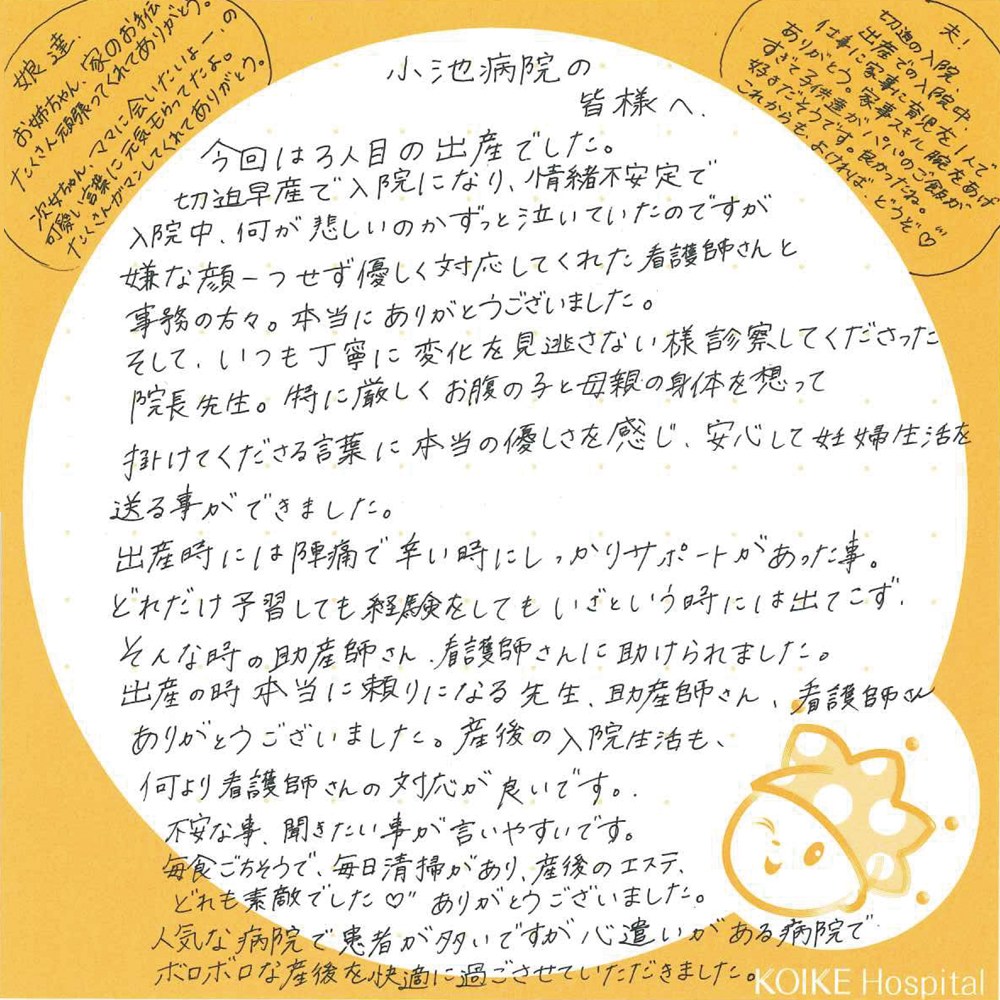 小池病院の
皆様へ.
今回は3人目の出産でした。
切迫早産で入院になり、情緒不安定で
入院中、何が悲しいのかずっと泣いていたのですが
嫌な顔一つせず優しく対応してくれた看護師さんと
事務の方々。本当にありがとうございました。
そして、いつも丁寧に変化を見逃さない様診察してくださった
院長先生。特に厳しくお腹の子と母親の身体を想って
掛けてくださる言葉に本当の優しさを感じ、安心して妊婦生活を
送る事ができました。
出産時には陣痛で辛い時にしっかりサポートがあった事。
どれだけ予習しても経験をしてもいざという時には出てこず、
そんな時の助産師さん、看護師さんに助けられました。
出産の時本当に頼りになる先生、助産師さん、看護師さん
ありがとうございました。産後の入院生活も、
何より看護師さんの対応が良いです。
不安な事、聞きたい事が言いやすいです。
毎食ごちそうで、毎日清掃があり、産後のエステ、
どれも素敵でした♡" ありがとうございました。
人気な病院で患者が多いですが心遣いがある病院で
ボロボロな産後を快適に過ごさせていただきました。
娘達.
お姉ちゃん、家のお手伝
たくさん頑張ってくれてありがとう。
次女ちゃん、ママに会いたいよー、の
可愛い言葉に元気もらってたよ。
たくさんガマンしてくれてありがとう。
夫!
切迫の入院、
出産での入院、中、
仕事に家事に育児を1人で
ありがとう。家事スキル、腕をあげ
すぎて子供達がパパのご飯が
好きだそうです。良かったね。
これからも、よければ、どうぞ♡"
KOIKE Hospital